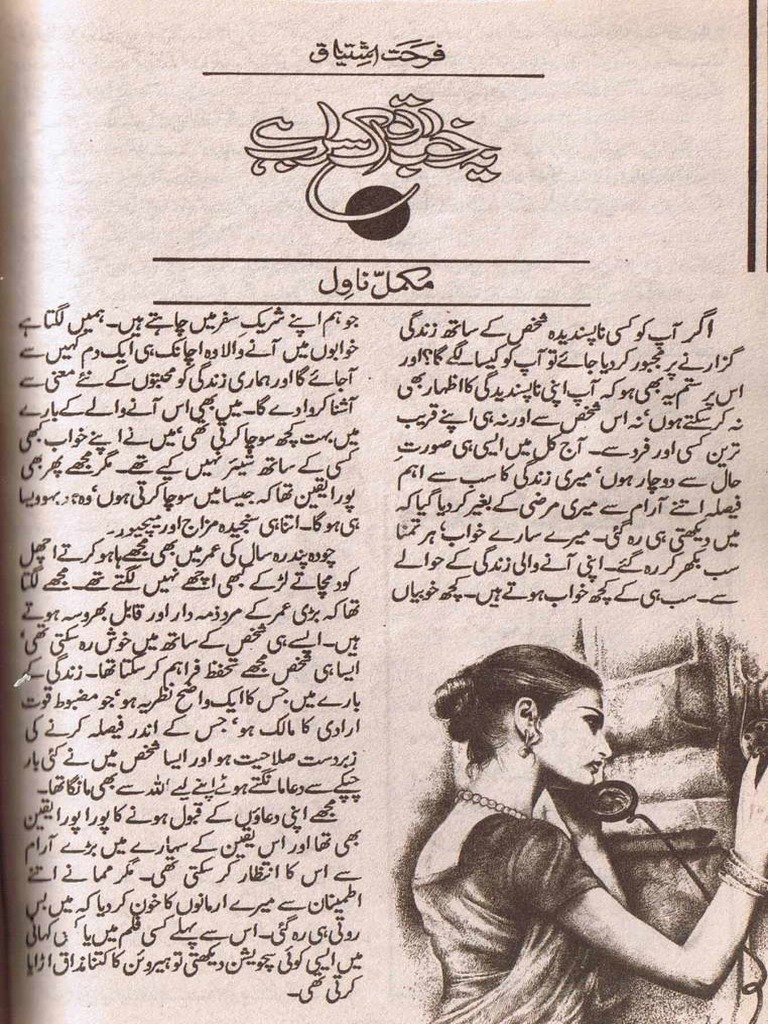 فرحت اشتیاق
یہ خواب
مکمل ناول
اگر آپ کو کسی ناپسندیدہ شخص کے ساتھ زندگی
گزارنے پر مجبور کردیا جائے تو آپ کو کیسا لگے گا؟ اور
اس پر ستم یہ بھی ہو کہ آپ اپنی ناپسندیدگی کا اظہار بھی
نہ کرسکتے ہوں، نہ اس شخص سے اور نہ ہی اپنے قریب
ترین کسی اور فرد سے۔ آج کل میں ایسی ہی صورتِ
حال سے دوچار ہوں، میری زندگی کا سب سے اہم
فیصلہ اتنے آرام سے میری مرضی کے بغیر کردیا گیا کہ
میں دیکھتی ہی رہ گئی۔ میرے سارے خواب، ہر تمنا
سب بکھر کر رہ گئے۔ اپنی آنے والی زندگی کے حوالے
سے۔ سب ہی کے کچھ خواب ہوتے ہیں۔ کچھ خوبیاں
جو ہم اپنے شریکِ سفر میں چاہتے ہیں۔ ہمیں لگتا ہے
خوابوں میں آنے والا وہ اچانک ہی ایک دم کہیں سے
آجائے گا اور ہماری زندگی کو محبتوں کے نئے معنی سے
آشنا کروا دے گا۔ میں بھی اس آنے والے کے بارے
میں بہت کچھ سوچا کرتی تھی، میں نے اپنے خواب کبھی
کسی کے ساتھ شیئر نہیں کیے تھے۔ مگر مجھے پھر بھی
پورا یقین تھا کہ جیسا میں سوچا کرتی ہوں، وہ ہو بہو ویسا
ہی ہوگا۔ اتنا ہی سنجیدہ مزاج اور میچیور۔
چودہ پندرہ سال کی عمر میں بھی مجھے ہاہو کرتے اچھل
کود مچاتے لڑکے کبھی اچھے نہیں لگتے تھے۔ مجھے لگتا
تھا کہ بڑی عمر کے مرد ذمہ دار اور قابل بھروسہ ہوتے
ہیں۔ ایسے ہی شخص کے ساتھ میں خوش رہ سکتی تھی،
ایسا ہی شخص مجھے تحفظ فراہم کرسکتا تھا۔ زندگی کے
بارے میں جس کا ایک واضح نظریہ ہو، جو مضبوط قوت
ارادی کا مالک ہو، جس کے اندر فیصلہ کرنے کی
زبردست صلاحیت ہو اور ایسا شخص میں نے کئی بار
چپکے سے دعا مانگتے ہوئے اپنے لیے اللہ سے بھی مانگا تھا۔
مجھے اپنی دعاؤں کے قبول ہونے کا پورا پورا یقین
بھی تھا اور اس یقین کے سہارے میں بڑے آرام
سے اس کا انتظار کرسکتی تھی۔ مگر مما نے اتنے
اطمینان سے میرے ارمانوں کا خون کردیا کہ میں بس
روتی ہی رہ گئی۔ اس سے پہلے کسی فلم میں یا کہانی
میں ایسی کوئی سچویشن دیکھتی تو ہیروئن کا کتنا مذاق اڑایا
کرتی تھی۔